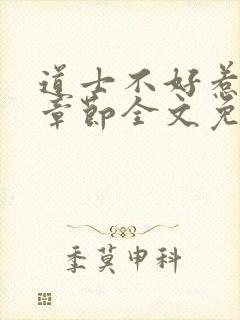 道士不好惹
章节全文免
季莫申科